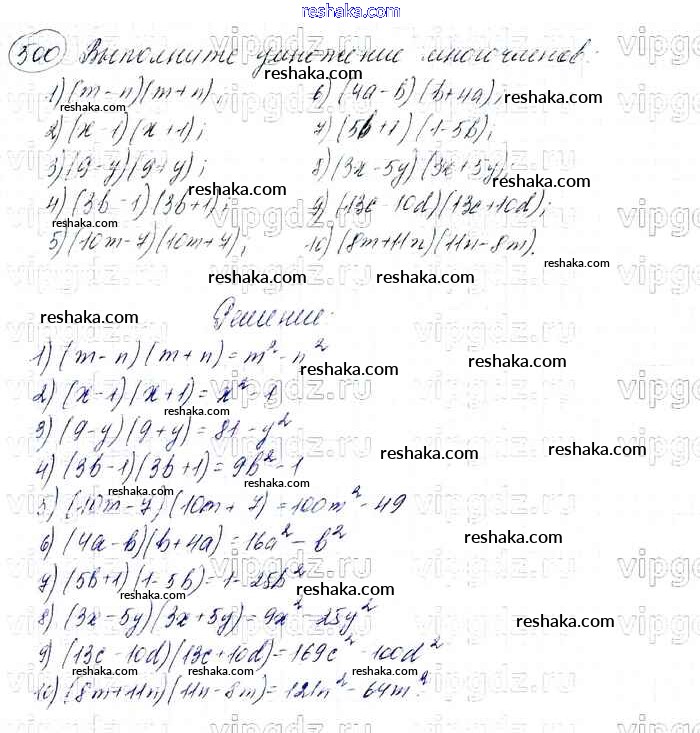 reshaka.com
500 Выполните умножение многочленов:
1) (m - n)(m + n);
2) (x - 1)(x + 1);
3) (9 - y)(9 + y);
4) (3b - 1)(3b + 1);
5) (10m - 7)(10m + 7);
6) (4a - b)(b + 4a);
7) (5b + 1)(1 - 5b);
8) (3x - 5y)(3x + 5y);
9) (13c - 10d)(13c + 10d);
10) (8m + 11n)(11n - 8m).
Решение.
1) (m - n)(m + n) = m² - n²
2) (x - 1)(x + 1) = x² - 1
3) (9 - y)(9 + y) = 81 - y²
4) (3b - 1)(3b + 1) = 9b² - 1
5) (10m - 7)(10m + 7) = 100m² - 49
6) (4a - b)(b + 4a) = 16a² - b²
7) (5b + 1)(1 - 5b) = 1 - 25b²
8) (3x - 5y)(3x + 5y) = 9x² - 25y²
9) (13c - 10d)(13c + 10d) = 169c² - 100d²
10) (8m + 11n)(11n - 8m) = 121n² - 64m²